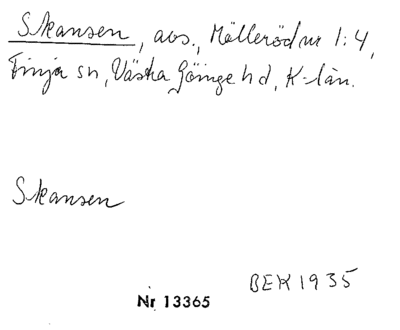 Skansen, avs., Mölleröd nr 1:4,
Finja sn, Västra Göinge hd, K-län.
Skansen
BEK 1935
Nr 13365